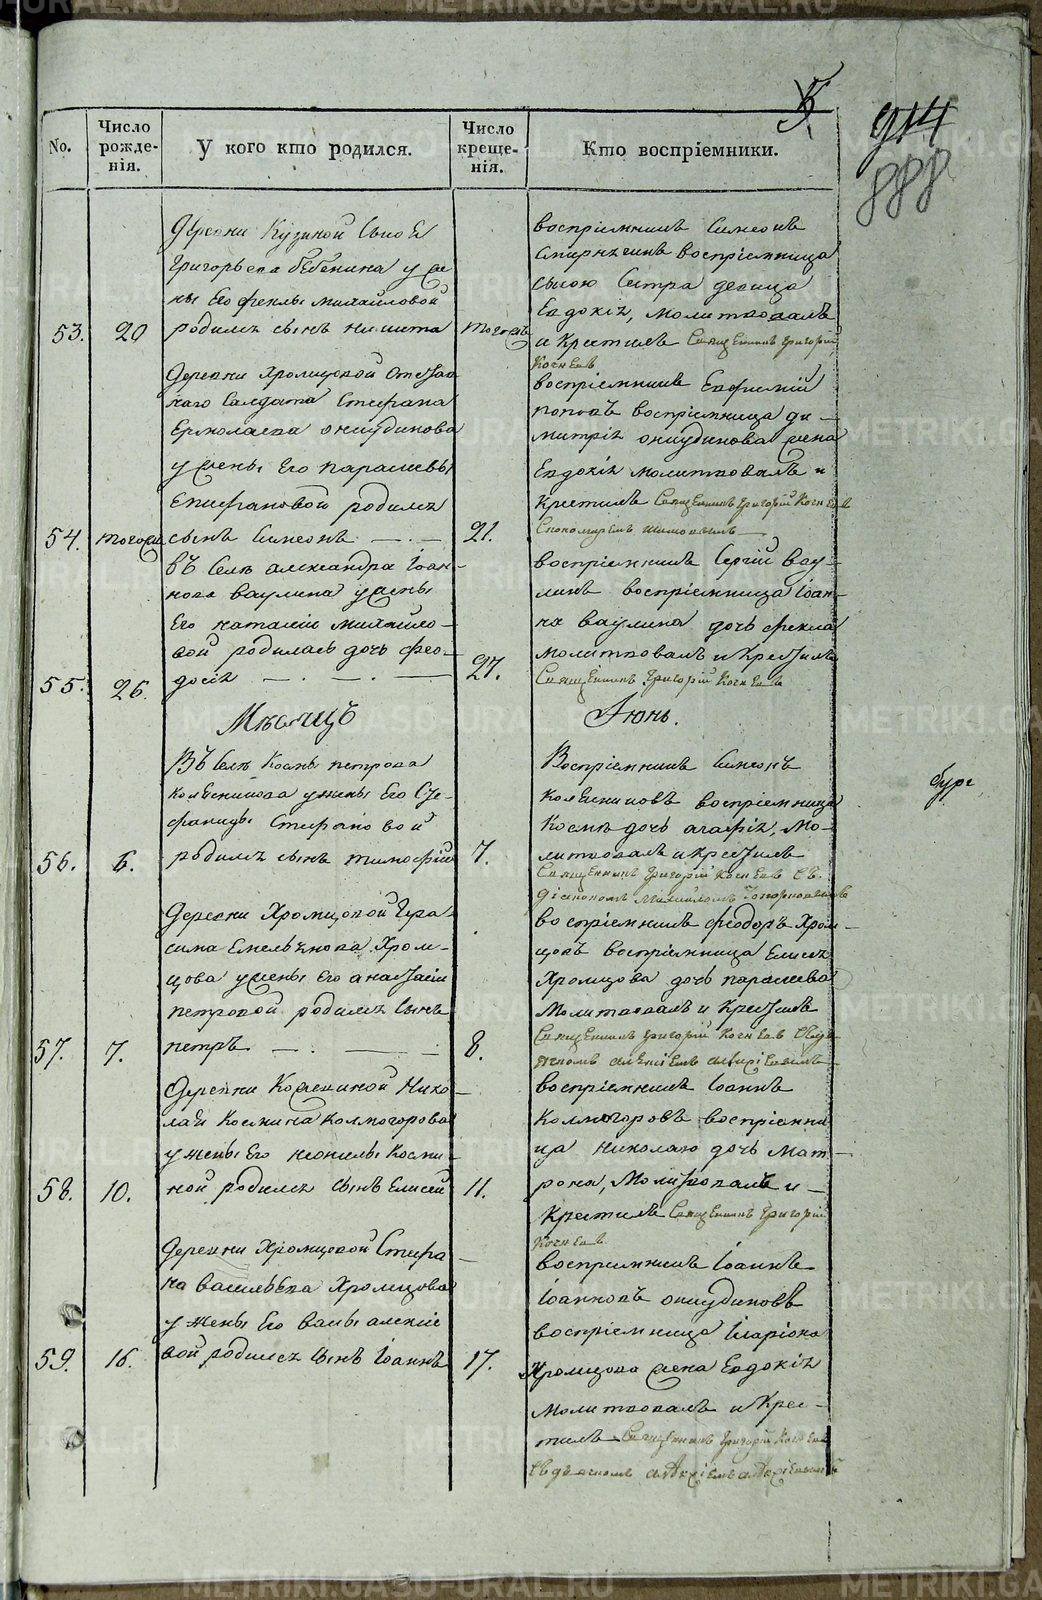 5
914
888
No.
Число рожде-нія.
У кого кто родился.
Число креще-нія.
Кто воспріемники.
Деревни Кузиной
Григорьева Бебенина у же
ны Его феклы михайловой
53. 20 родился сынъ никита тогожъ
воспріемникъ Симеонъ
воспріемница
сестра девица
Евдокія, молитвовалъ
и крестилъ Священникъ Григорій
Кочневъ
Деревни Хромцовой Отстав
наго Салдата Стефана
Ермолаева оникудинова
у жены Его параскевы
Епифановой родился
54. тогожъ сынъ Симеонъ 21.
воспріемникъ Евфимій
поповъ воспріемница ди-
митрія оникудинова жена
Евдокія молитвовалъ и
крестилъ Священникъ Григорій Кочневъ
Спономаремъ
въ Селе александра Іоан-
нова ваулина у жены
Его наталіи михайло-
вой родилась дочь фео-
55. 26. досія 27.
воспріемникъ Сергій вау-
линъ воспріемница Іоан-
на ваулина дочь фекла
молитвовалъ и крестилъ
Священникъ Григорій Кочневъ
Месяцъ Іюнь.
Въ Селе Космы петрова
колясникова у жены Его Сте-
фаниды Стефановой
56. 6. родился сынъ тимофей 7.
Воспріемникъ Симеонъ
колясниковъ воспріемница
Космы дочь агафія, Мо-
литвовалъ и крестилъ
Священникъ Григорій Кочневъ Съ
діакономъ михаиломъ
бург
Деревни Хромцовой Гера
сима Емельянова Хром-
цова у жены Его анастасіи
петровой родился Сынъ
57. 7. петръ 8.
воспріемникъ феодоръ Хром-
цовъ воспріемница
Хромцова дочь параскева
Молитвовалъ и крестилъ
Священникъ Григорій Кочневъ Съдь
ячкомъ алексіемъ
Деревни Кожевиной Нико-
лая Космина Колмогорова
у жены Его неонилы Косми-
58. 10. ной родился сынъ Елисей 11.
воспріемникъ Іоаннъ
Колмогоровъ воспріемни
ца николаю дочь мат-
рона, Молитвовалъ и
крестилъ Священникъ Григорій
Кочневъ
Деревни Хромцовой Стефа-
на васильева Хромцова
у жены Его
59. 16. вой родился сынъ Іоаннъ 17.
воспріемникъ Іоаннъ
Іоанновъ оникудиновъ
воспріемница Иларіона
Хромцова жена Евдокія
Молитвовалъ и крес-
тилъ Священникъ Григорій Кочневъ
Съдьячкомъ